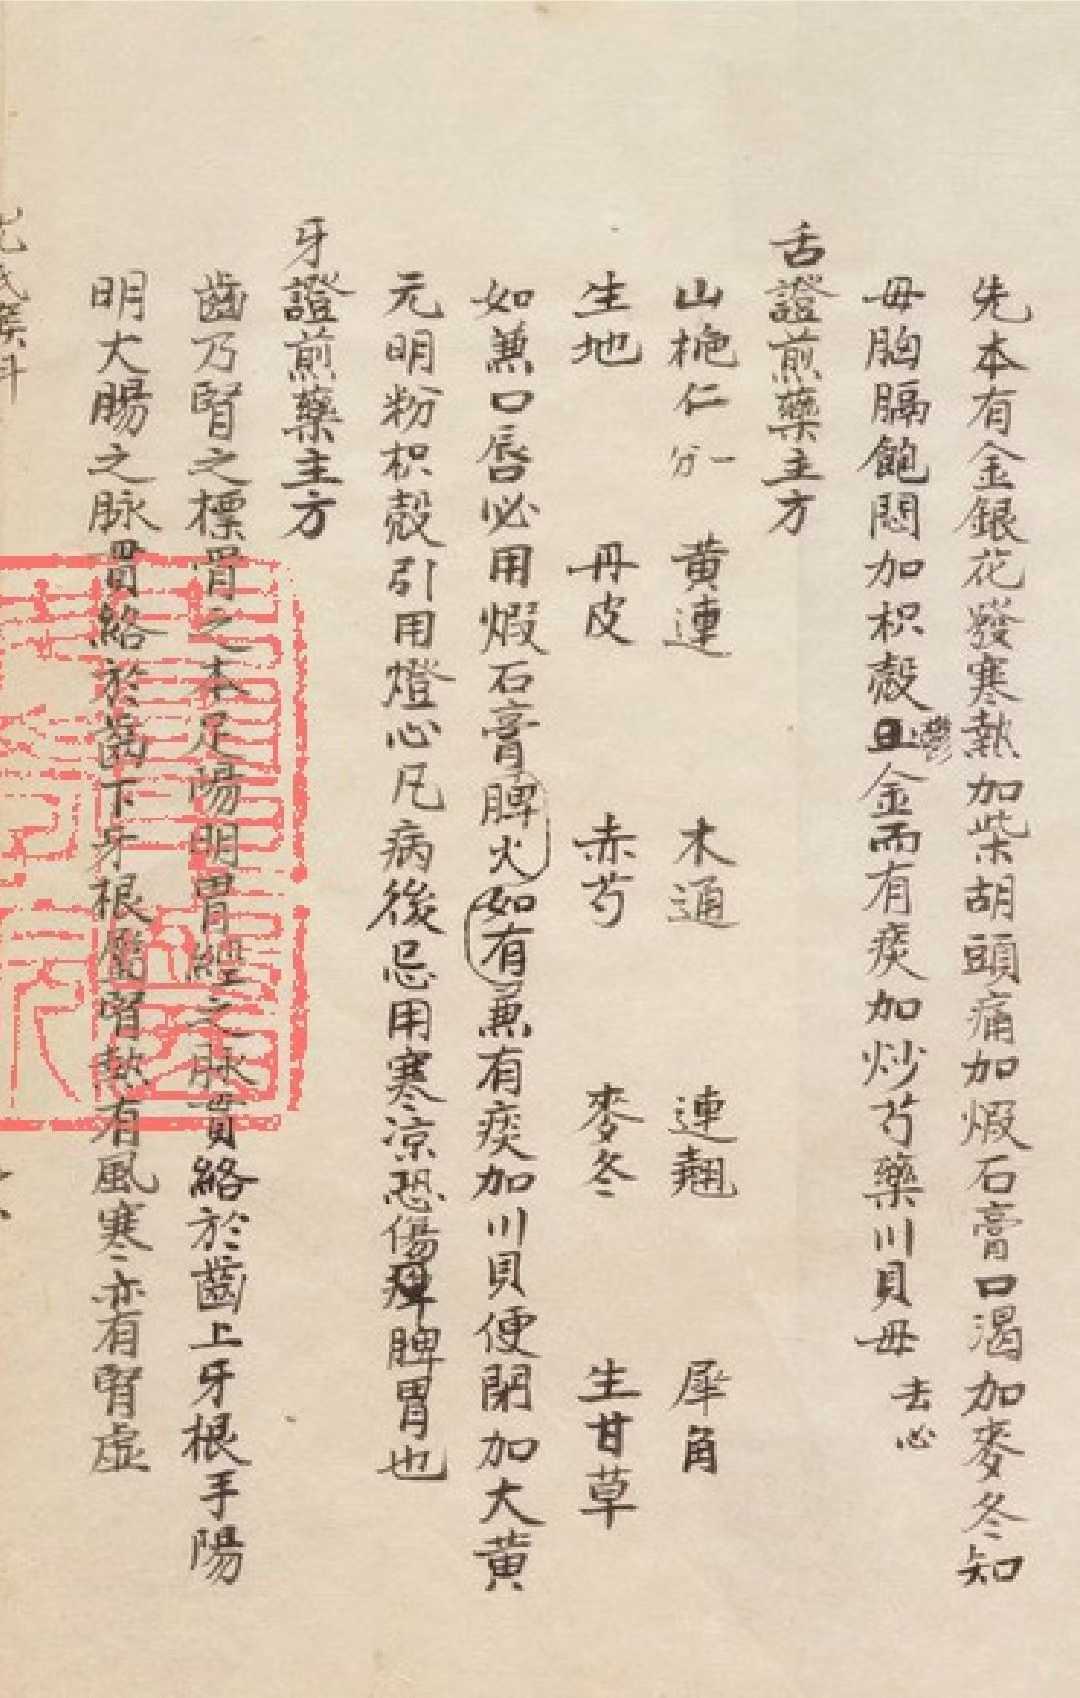 先本有金銀花發寒熱加柴胡頭痛加煆石膏口渴加麥冬知
毋胸膈飽悶加枳殼鬱金而有痰加炒芍藥川貝毋去心
舌證煎藥主方
山梔仁 黄連 木通 連翹 犀角
生地 丹皮 赤芍 麥冬 生甘草
如兼口唇必用煆石膏脾火如有兼有痰加川貝便閉加大黄
元明粉枳殼引用燈心凡病後忌用寒凉恐傷脾胃也
牙證煎藥主方
齒乃腎之標骨之本足陽明胃經之脉貫絡於齒上牙根手陽
明大腸之脉貫絡於齒下牙根屬腎熱有風寒亦有腎虛